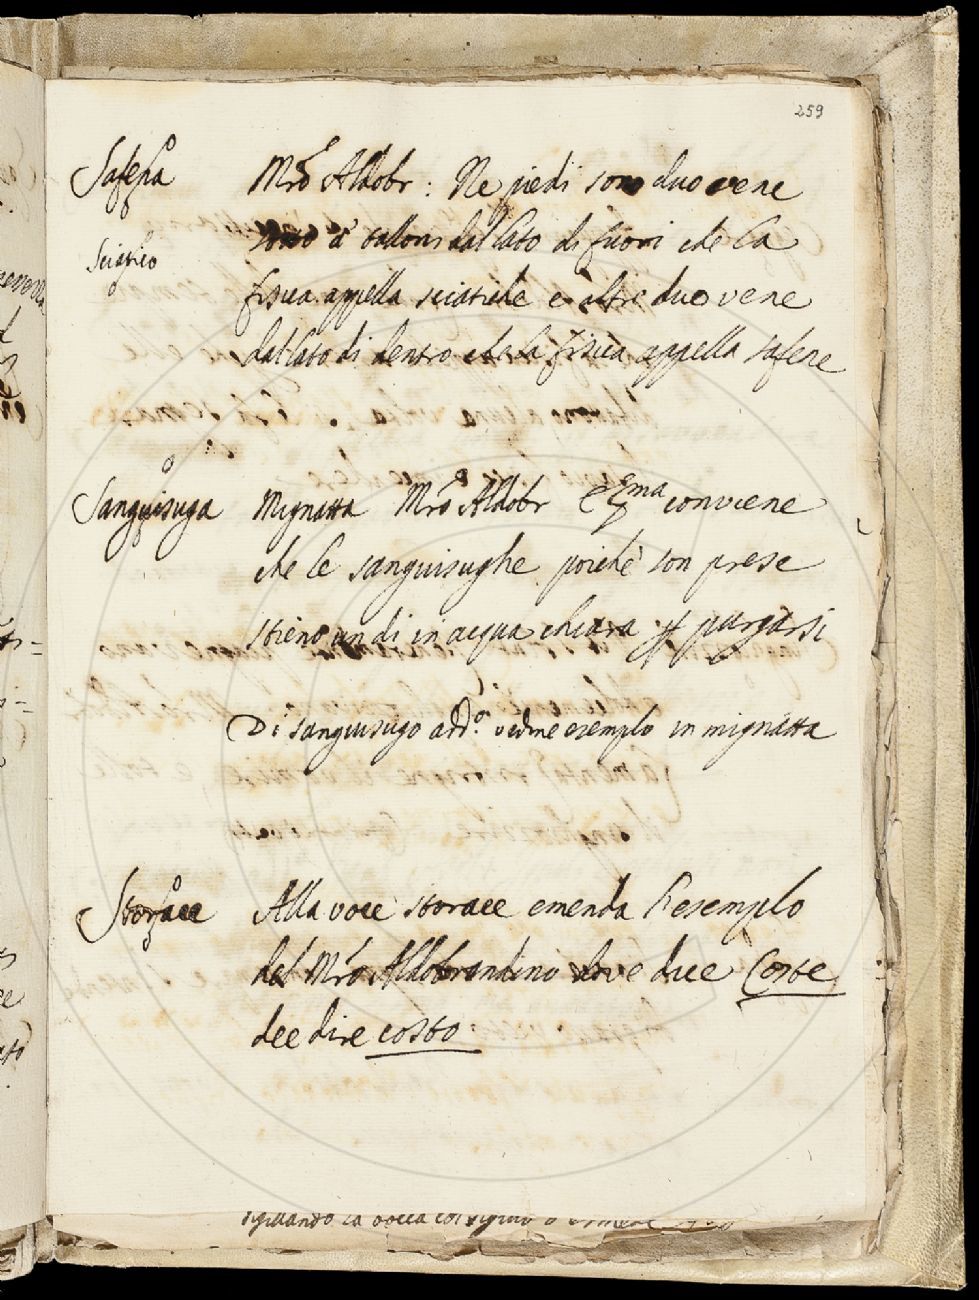 259
Safena Mro Aldobr: Ne piedi sono duo vene
sotto a talloni dal lato di fuori che la
Sciatico
fisica appella sciatiche e altre duo vene
dal lato di dentro che la fisica appella safene
Sanguisuga Mignatta Mro Aldobr E ma conviene
che le sanguisughe poichè son prese
stieno un di in acqua chiara p purgarsi
Di sanguisugo add.o vedine esemplo in mignatta
Storace Alla voce storace emenda l'esemplo
del Mro Aldobrandino dove dice Coste
dee dire costo